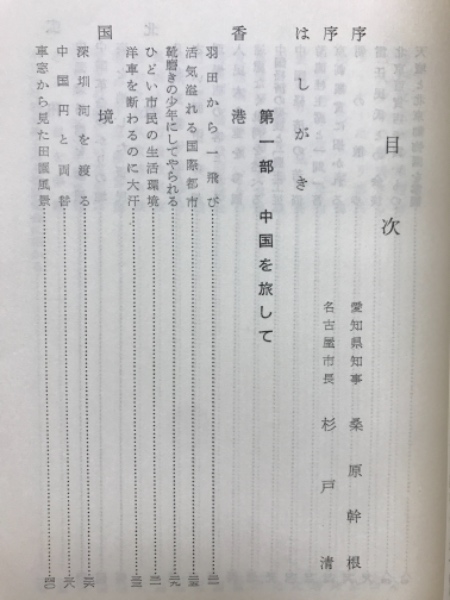 目次
序 愛知県知事 桑原幹根
序 名古屋市長 杉戸清
はしがき
第一部 中国を旅して
香港
羽田から一飛び
活気溢れる国際都市
靴磨きの少年にしてやられる
ひどい市民の生活環境
洋車を断わるのに大汗
国境
深圳河を渡る
中国円と両替
車窓から見た田園風景